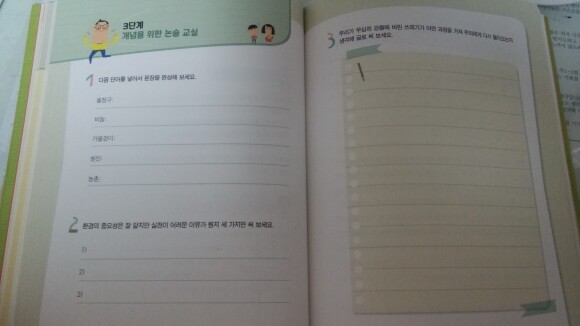 3단계
개념을 위한 논술 교실
1 다음 단어를 넣어서 문장을 완성해 보세요.
옹달구:
비밀:
가을걷이:
농촌:
2 환경의 중요성은 잘 알지만 실천이 어려운 이유가 뭔지 세 가지만 써 보세요.
1)
2)
3)
3 우리가 무심히 강물에 버린 쓰레기가 어떤 과정을 거쳐 우리에게 다시 돌아오는지
생각해 글로 써 보세요.